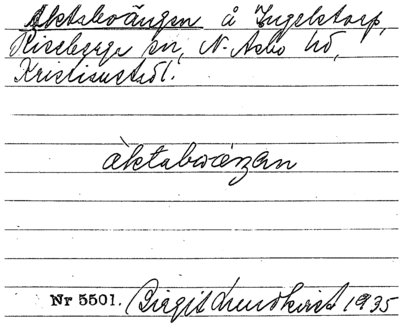 Aktaboängen å Ingelstorp,
Riseberga sn, N. Åsbo hd,
Kristianst. l.
àktabwéŋan
Nr 5501. Birgit Lundkvist 1935